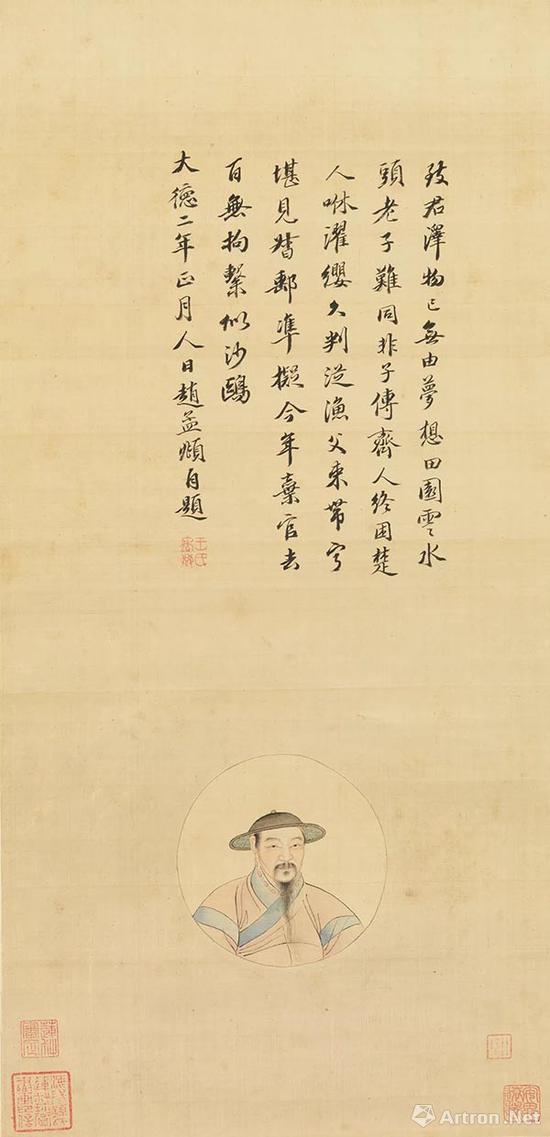 致君澤物已無由夢想田園雲水
頭老子難同非子傳齊人終困楚
人咻濯纓久判從漁父束帶寧
堪見督郵準擬今年棄官去
百無拘繫似沙鷗
大德二年正月人日趙孟頫自題
Artron.Net